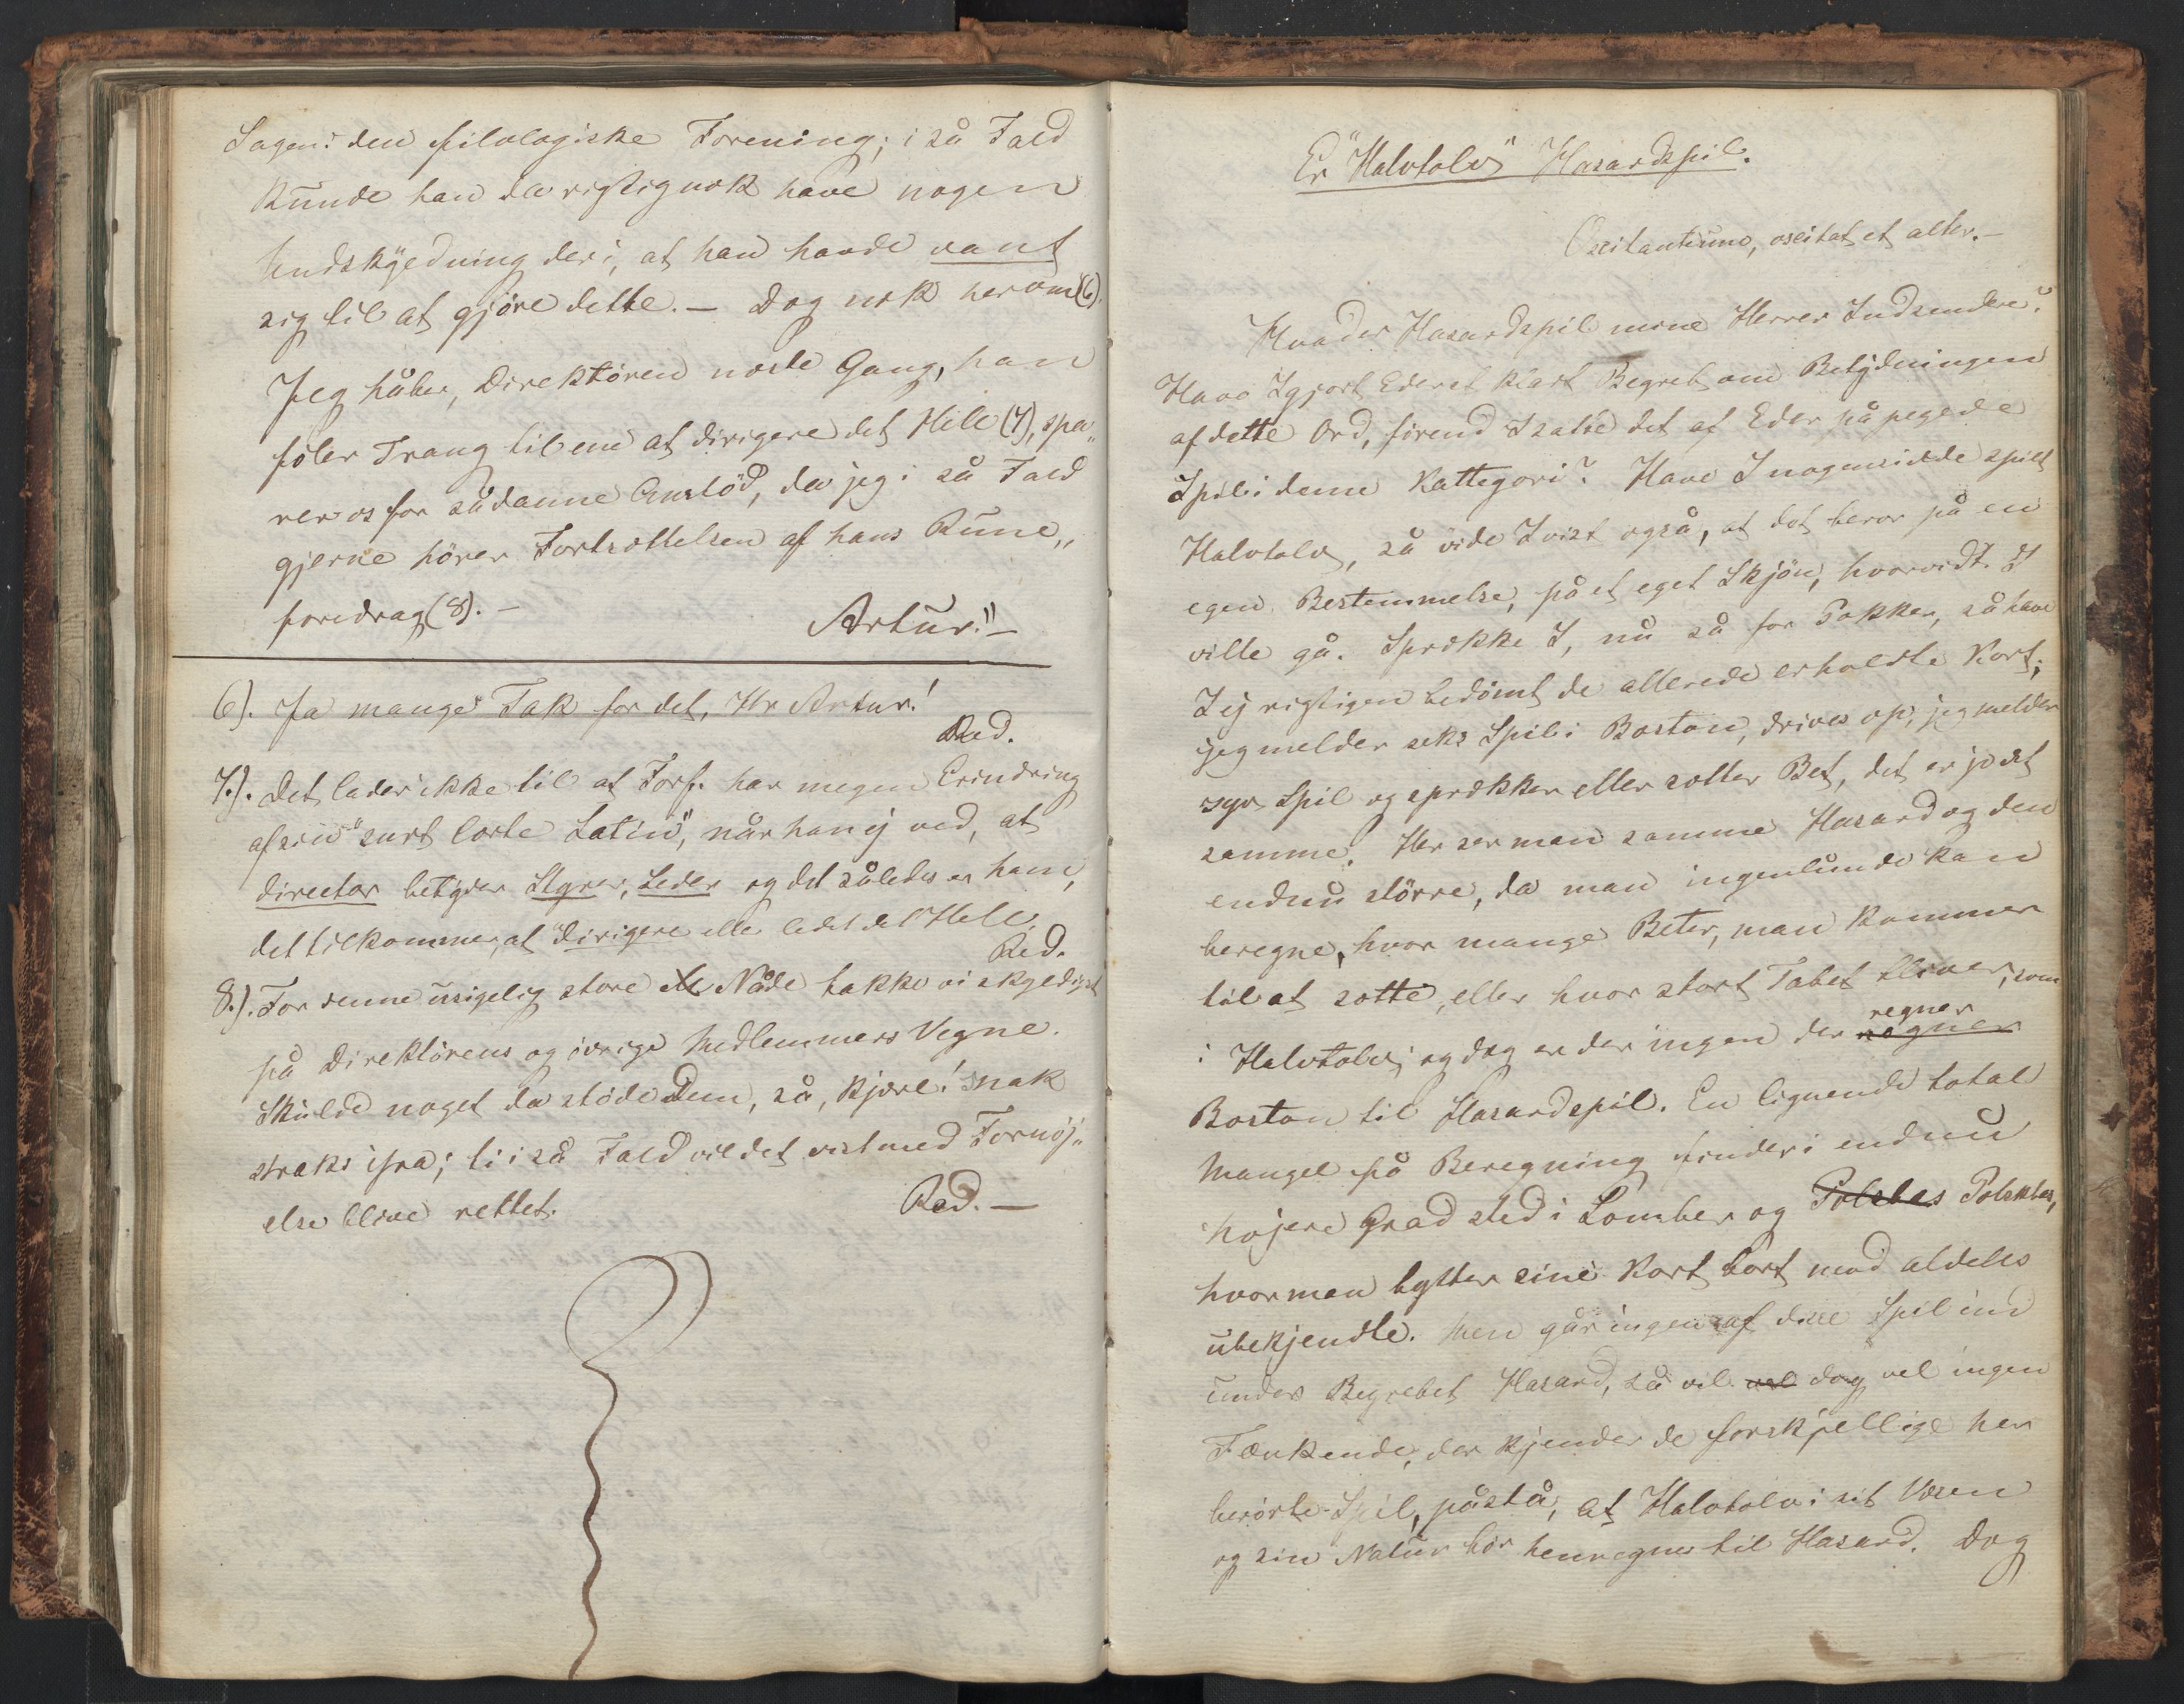 Sagen i den filologiske Forening; i så Fald
kunde han da rigtignok have nogen
Undskyldning deri, at han havde vant
sig til at gjöre dette. — Dog nok herom (6).
Jeg håber, Direktören næste Gang, han
föler Trang til en at dirigere det Hele (7), spa„
rer os for sådanne Anstöd, da jeg i så Fald
gjerne hörer Fortsættelsen af hans Rune„
foredrag (8). —
Artur." —
6). Ja mange Tak for det, Hr Artur!
Red.
7.). Det lader ikke til at Forf. har megen Erindring
af sin "surt lærte Latin", når han ej ved, at
director betyder Styrer, Leder og det således er ham,
det tilkommer, at "dirigere eller lede" det Hele.
Red.
8.). For denne usigelig store M Nåde takke vi skyldigst
på Direktörens og övrige Medlemmers Vegne.
Skulde noget da stöde Dem, så, kjære! snak
straks ifra; ti i så Fald vil det vist med Fornöj„
else blive rettet.
Red. —
Er "Halvtolv" Hasardspil.
Oscitantium, oscitat et alter. —
Hvad er Hasardspil mine Herrer Indsendere?
Have I gjort Eder et klart Begreb om Betydningen
af dette Ord, förend I satte det af Eder påpegede
Spil i denne Kattegori? Have I nogensinde spilt
Halvtolv, så vide I vist også, at det beror på en
egen Bestemmelse, på et eget Skjön, hvorvidt I
ville gå. Sprække I, nu så for Pokker, så have
I ej rigtigen bedömt de allerede erholdte Kort;
jeg melder seks Spil i Boston, drives op, jeg melder
syv Spil og sprækker eller sætter Bet, det er jo det
samme. Her ser man samme Hasard og den
endnu större, da man ingenlunde kan
beregne, hvor mange Beter, man kommer
til at sætte, eller hvor stort Tabet bliver, som
i Halvtolv; og dog er der ingen der regner regner
Boston til Hasardspil. En lignende total
Mangel på Beregning finder i endnu
höjere Grad sted i Lomber og Polskbas Polskbas,
hvor man bytter sine Kort bort mod aldeles
ubekjendte. Men går ingen af disse Spil ind
under Begrebet Hasard, så vil vel dog vel ingen
Tænkende, der kjender de forskjellige her
berörte Spil, påstå, at Halvtolv i sit Væsen
og sin Natur bör henregnes til Hasard. Dog